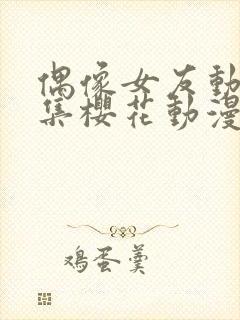 偶像女友動
集櫻花動漫
鸡蛋羹